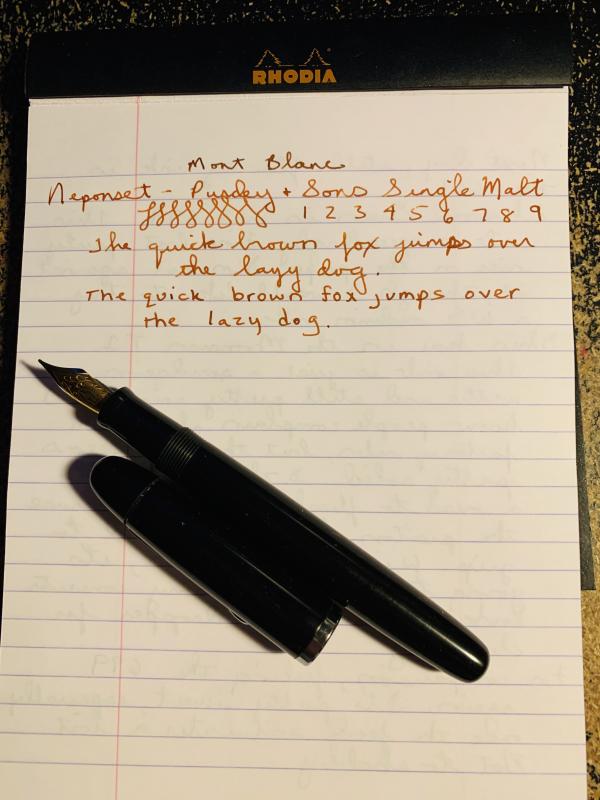 RHODIA
Mont Blanc
Neponset - Purdey + Sons Single Malt
1 2 3 4 5 6 7 8 9
The quick brown fox jumps over
the lazy dog.
The quick brown fox jumps over
the lazy dog.